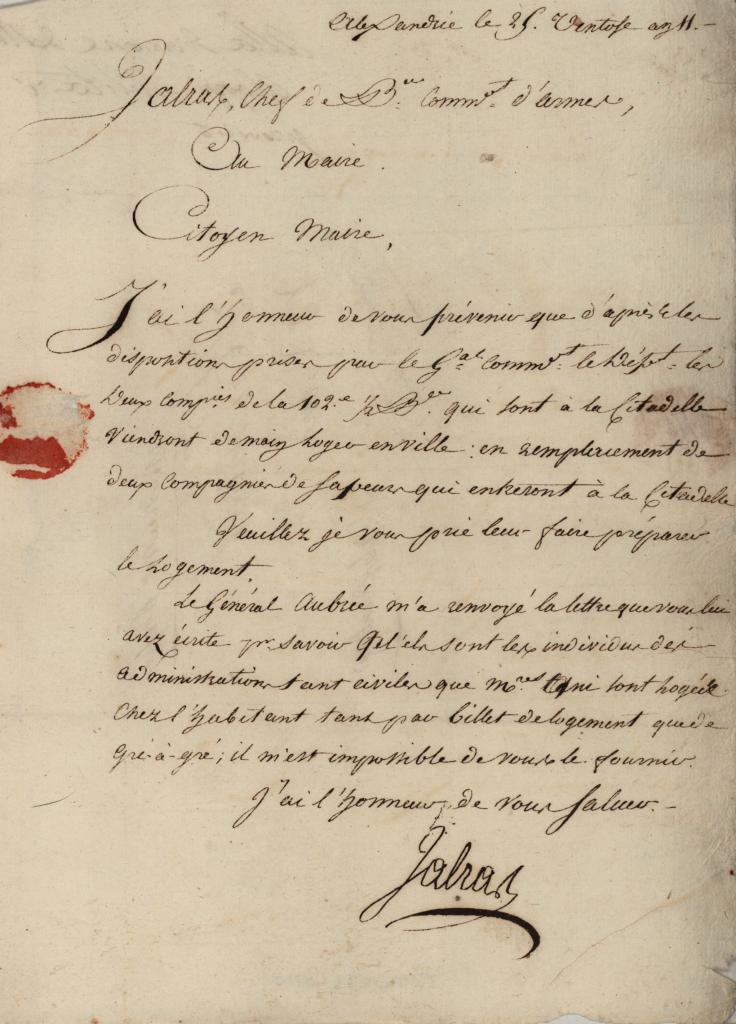 Alexandrie le 25. Ventose an 11. -
Jalras, Chef de B.on Comm.t d'armes,
Au Maire.
Citoyen Maire,
J'ai l'honneur de vous prévenir que d'après les
dispositions prises par le G.al Comm.t le Dép.t les
deux Comp.ies de la 102.e 1/2 B.de qui sont à la Citadelle
viendront demain loger en ville : en remplacement de
deux Compagnies de Sapeurs qui entreront à la Citadelle
Veuillez je vous prie leur faire préparer
le logement.
Le Général Aubrée m'a renvoyé la lettre que vous lui
avez écrite pr. savoir Qu'els sont les individus des
administrations tant civiles que m.res qui sont logés
chez l'habitant tant par billet de logement que de
gré-à-gré ; il m'est impossible de vous le fournir.
J'ai l'honneur de vous saluer. -
Jalras